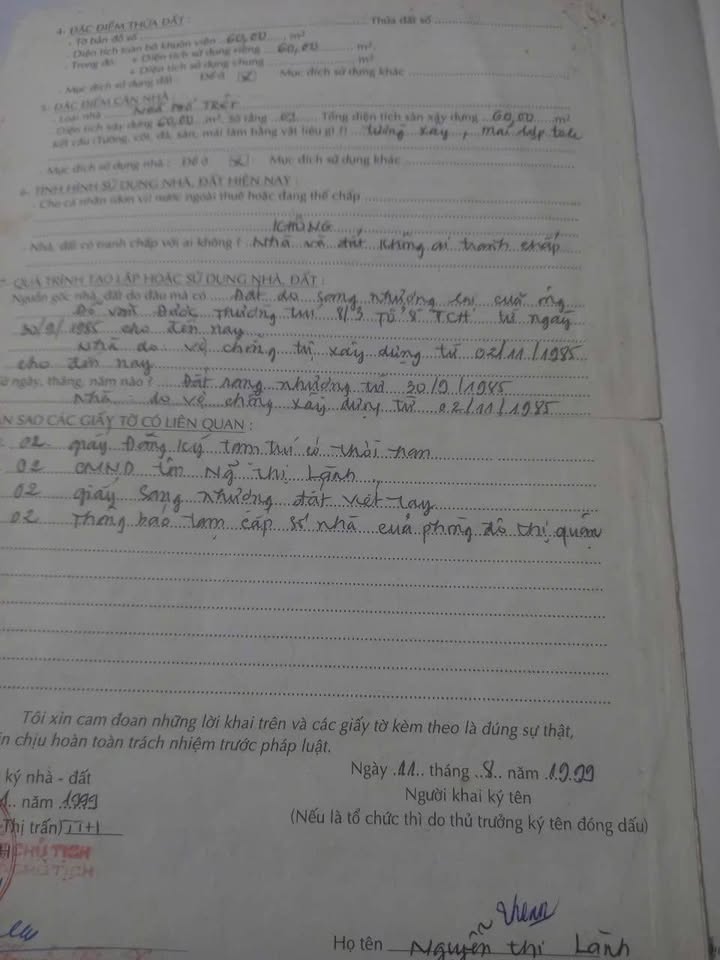 4- ĐẶC ĐIỂM THỬA ĐẤT :
- Tờ bản đồ số ... Thửa đất số ...
- Diện tích toàn bộ khuôn viên 60,00 m².
- Trong đó + Diện tích sử dụng riêng 60,00 m².
+ Diện tích sử dụng chung ... m²
- Mục đích sử dụng đất Để ở ☒ Mục đích sử dụng khác
5- ĐẶC ĐIỂM CĂN NHÀ
- Loại nhà NHÀ PHỐ TRỆT
- Diện tích xây dựng 60,00 m². Số tầng 01 Tổng diện tích sàn xây dựng 60,00 m²
Kết cấu (Tường, cột, đà, sàn, mái làm bằng vật liệu gì ?) tường xây, mái lợp tole
- Mục đích sử dụng nhà : Để ở ☒ Mục đích sử dụng khác
6- TÌNH HÌNH SỬ DỤNG NHÀ, ĐẤT HIỆN NAY :
- Cho cá nhân nước ngoài thuê hoặc đang thế chấp
KHÔNG
- Nhà, đất có tranh chấp với ai không ? Nhà và đất không ai tranh chấp
7- QUÁ TRÌNH TẠO LẬP HOẶC SỬ DỤNG NHÀ, ĐẤT :
Nguồn gốc nhà, đất do đâu mà có Đất do sang nhượng lại của ông
Đỗ Văn Được thường trú 8/3 Tổ 8 TCH từ ngày
30/9/1985 cho đến nay
Nhà do vợ chồng tự xây dựng từ 02/11/1985
cho đến nay
ừ ngày, tháng, năm nào ? Đất sang nhượng từ 30/9/1985
Nhà do vợ chồng xây dựng từ 02/11/1985
N SAO CÁC GIẤY TỜ CÓ LIÊN QUAN :
02 giấy Đăng ký tạm trú có thời hạn
02 CMND tên Ng Thị Lành
02 giấy sang nhượng đất viết tay
02 Thông báo tạm cấp số nhà của phòng đô thị quận
Tôi xin cam đoan những lời khai trên và các giấy tờ kèm theo là đúng sự thật,
in chịu hoàn toàn trách nhiệm trước pháp luật.
Ngày 11 tháng 8 năm 1999
ký nhà - đất
Người khai ký tên
năm 1999
(Nếu là tổ chức thì do thủ trưởng ký tên đóng dấu)
Thị trấn)
CHỦ TỊCH
CHỦ TỊCH
Họ tên Nguyễn Thị Lành